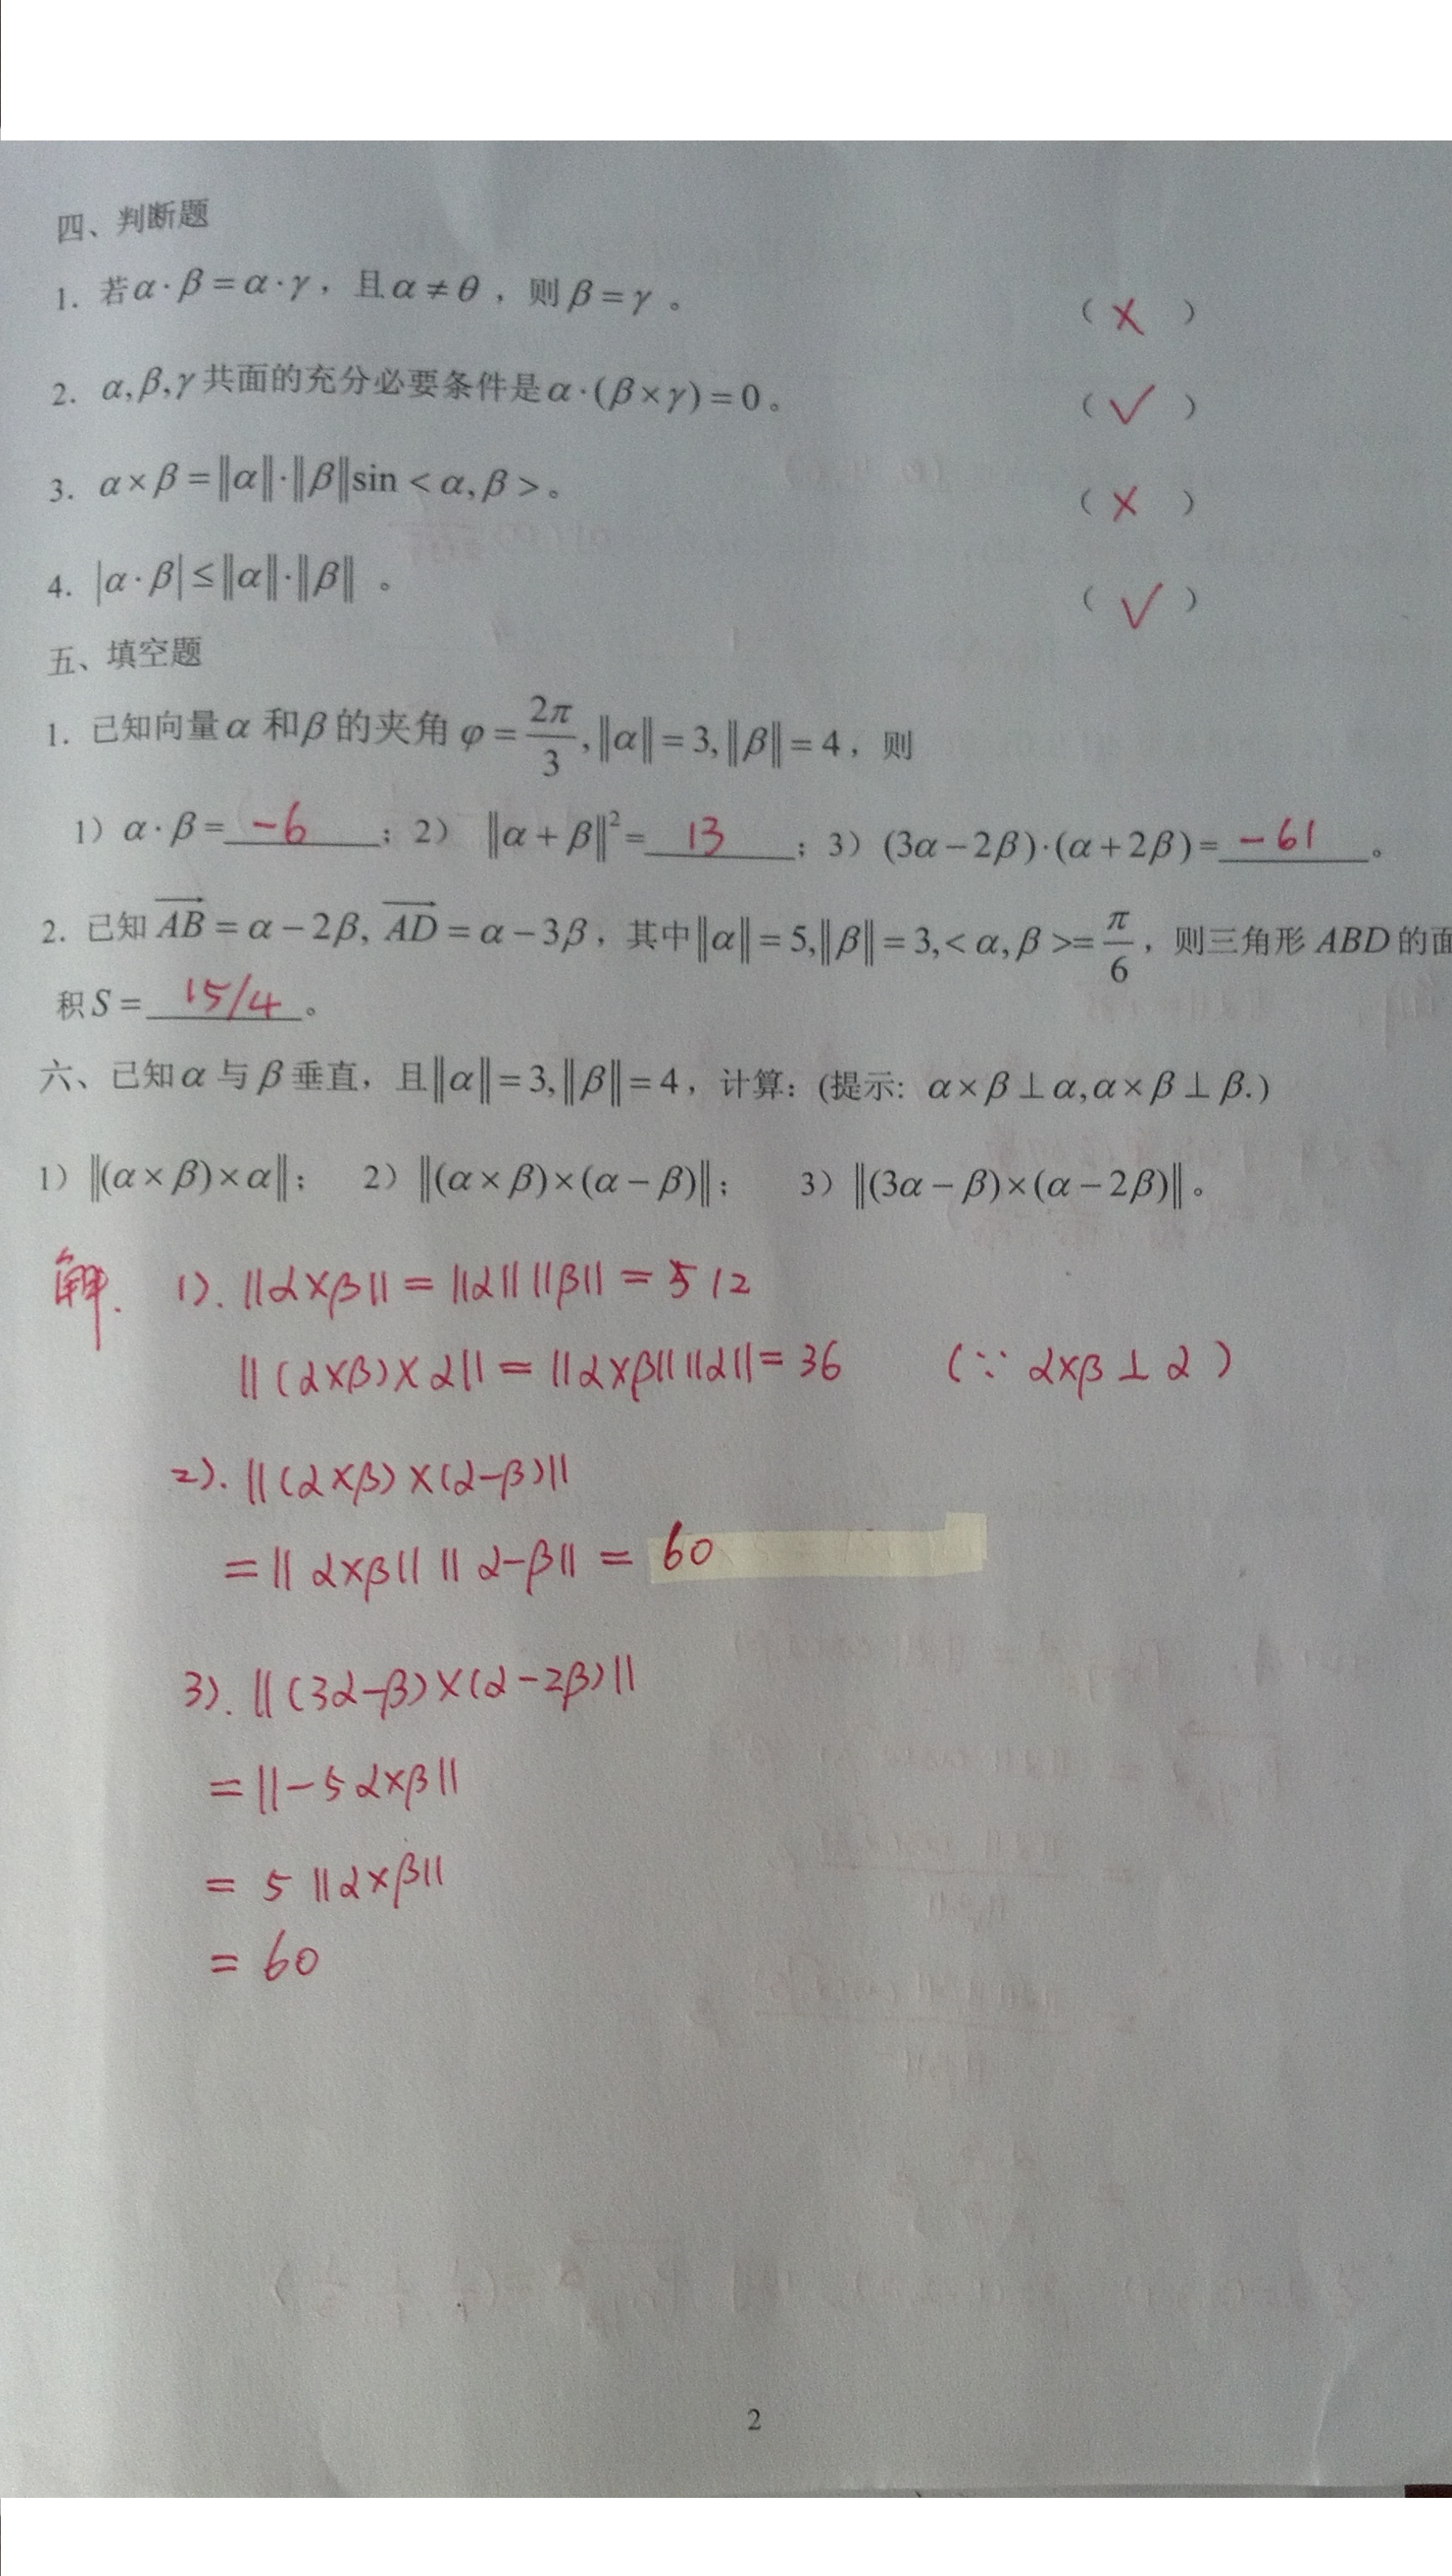 四、判断题
1. 若α·β=α·γ，且α≠θ，则β=γ。 （ × ）
2. α,β,γ共面的充分必要条件是α·(β×γ)=0。 （ √ ）
3. α×β=‖α‖·‖β‖sin<α,β>。 （ × ）
4. |α·β|≤‖α‖·‖β‖ 。 （ √ ）
五、填空题
1. 已知向量α和β的夹角φ=2π/3,‖α‖=3,‖β‖=4，则
1）α·β= -6 ；2）‖α+β‖²= 13 ；3）(3α-2β)·(α+2β)= -61 。
2. 已知AB=α-2β, AD=α-3β，其中‖α‖=5,‖β‖=3,<α,β>=π/6，则三角形ABD的面
积S= 15/4 。
六、已知α与β垂直，且‖α‖=3,‖β‖=4，计算：(提示: α×β⊥α,α×β⊥β.)
1）‖(α×β)×α‖； 2）‖(α×β)×(α-β)‖； 3）‖(3α-β)×(α-2β)‖。
解. 1). ‖α×β‖=‖α‖‖β‖=12
‖(α×β)×α‖=‖α×β‖‖α‖=36 (∵ α×β⊥α)
2). ‖(α×β)×(α-β)‖
=‖α×β‖‖α-β‖= 60
3). ‖(3α-β)×(α-2β)‖
=‖-5α×β‖
= 5‖α×β‖
= 60
2